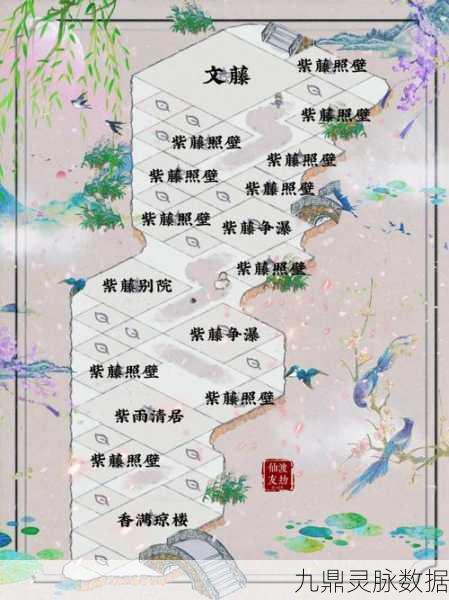 文藤
紫藤照壁
紫藤照壁
紫藤照壁
紫藤照壁
紫藤照壁
紫藤照壁
紫藤照壁
紫藤争瀑
紫藤照壁
紫藤别院
紫藤争瀑
紫藤照壁
紫藤照壁
紫雨清居
紫藤照壁
香满琼楼
仙渡
友坊
九鼎灵脉数据